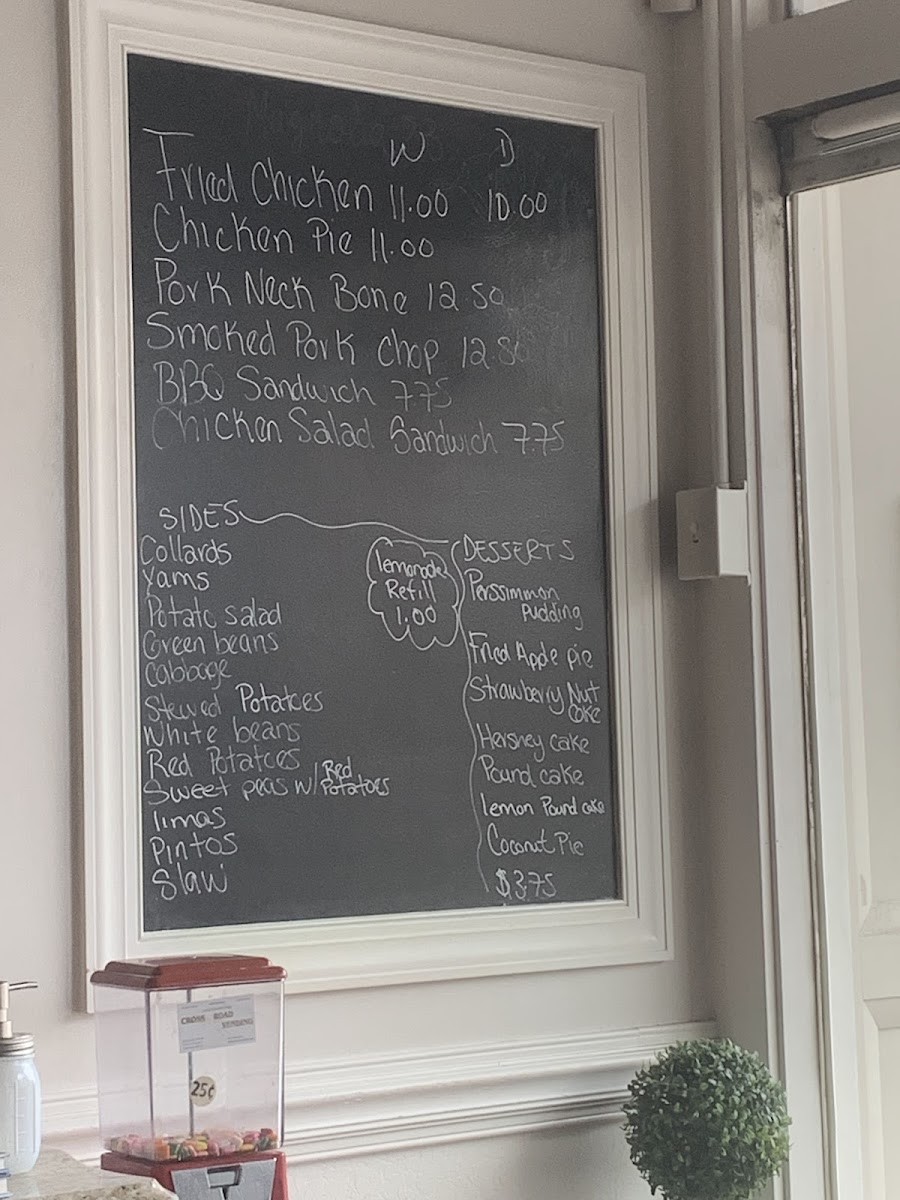 W D
Fried Chicken 11.00 10.00
Chicken Pie 11.00
Pork Neck Bone 12.50
Smoked Pork Chop 12.50
BBQ Sandwich 7.75
Chicken Salad Sandwich 7.75
SIDES
Collards
Yams
Potato salad
Green beans
Cabbage
Stewed Potatoes
White beans
Red Potatoes
Sweet peas w/ Red Potatoes
limas
Pintos
Slaw
lemonade
Refill
1.00
DESSERTS
Perssimmon
Pudding
Fried Apple pie
Strawberry Nut
Cake
Hershey cake
Pound cake
lemon Pound cake
Coconut Pie
$3.75
CROSS ROAD
VENDING
25¢